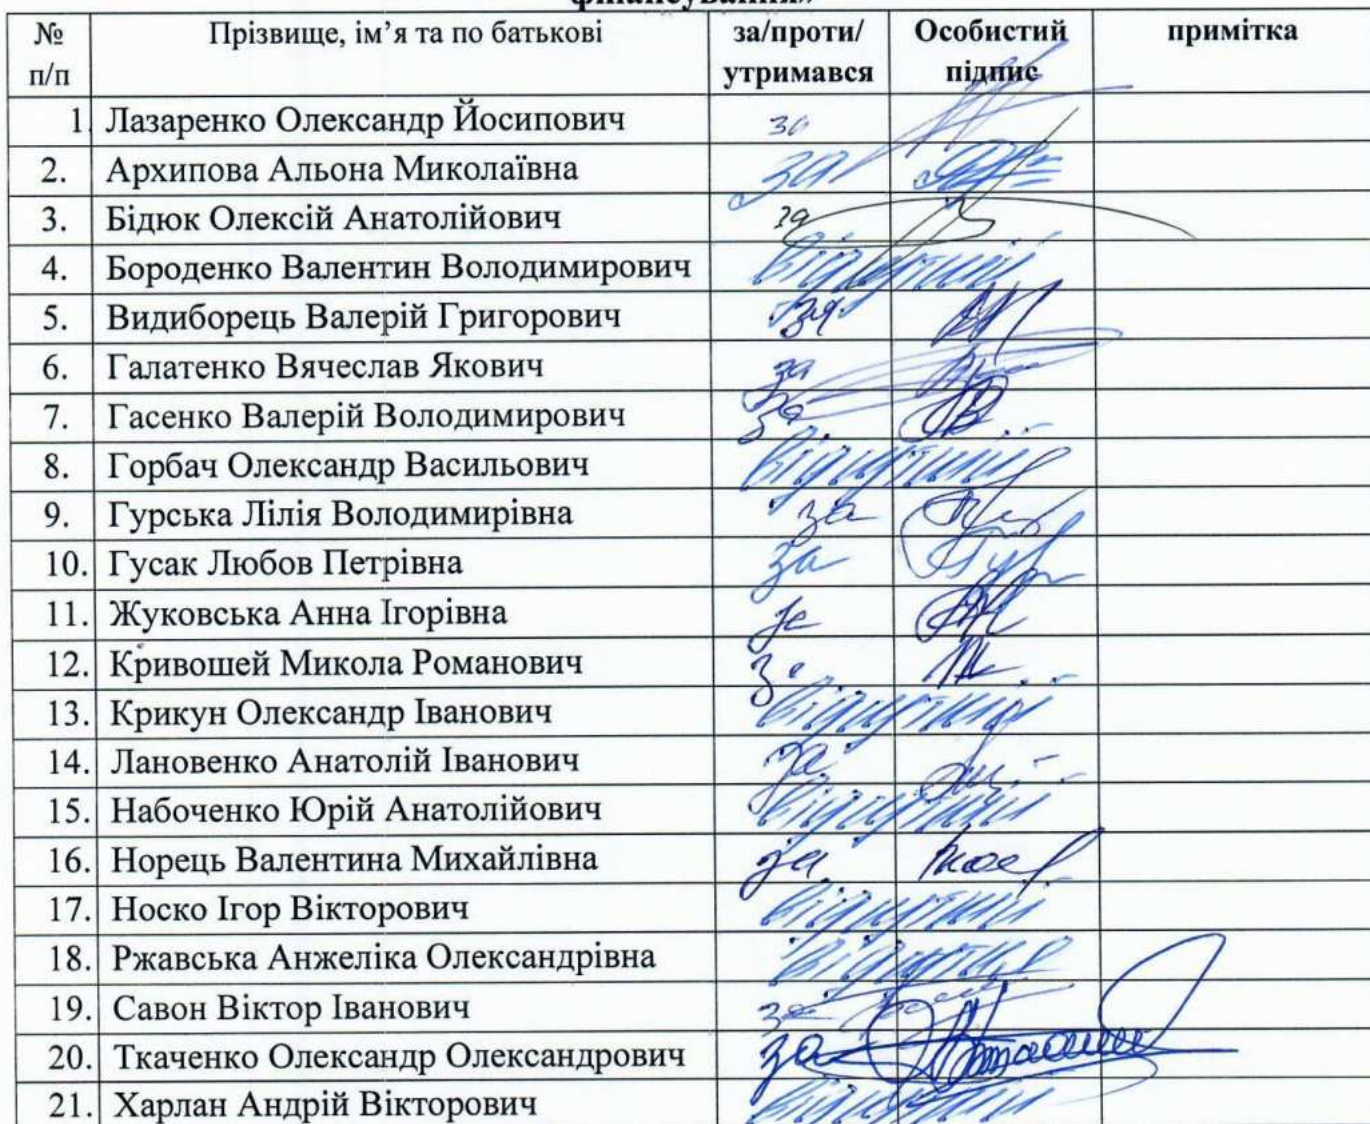 фінансування»
№ п/п Прізвище, ім’я та по батькові за/проти/ утримався Особистий підпис примітка
1. Лазаренко Олександр Йосипович за
2. Архипова Альона Миколаївна за
3. Бідюк Олексій Анатолійович за
4. Бороденко Валентин Володимирович відсутній
5. Видиборець Валерій Григорович за
6. Галатенко Вячеслав Якович за
7. Гасенко Валерій Володимирович за
8. Горбач Олександр Васильович відсутній
9. Гурська Лілія Володимирівна за
10. Гусак Любов Петрівна за
11. Жуковська Анна Ігорівна за
12. Кривошей Микола Романович за
13. Крикун Олександр Іванович відсутній
14. Лановенко Анатолій Іванович за
15. Набоченко Юрій Анатолійович відсутній
16. Норець Валентина Михайлівна за
17. Носко Ігор Вікторович відсутній
18. Ржавська Анжеліка Олександрівна відсутня
19. Савон Віктор Іванович за
20. Ткаченко Олександр Олександрович за
21. Харлан Андрій Вікторович відсутній